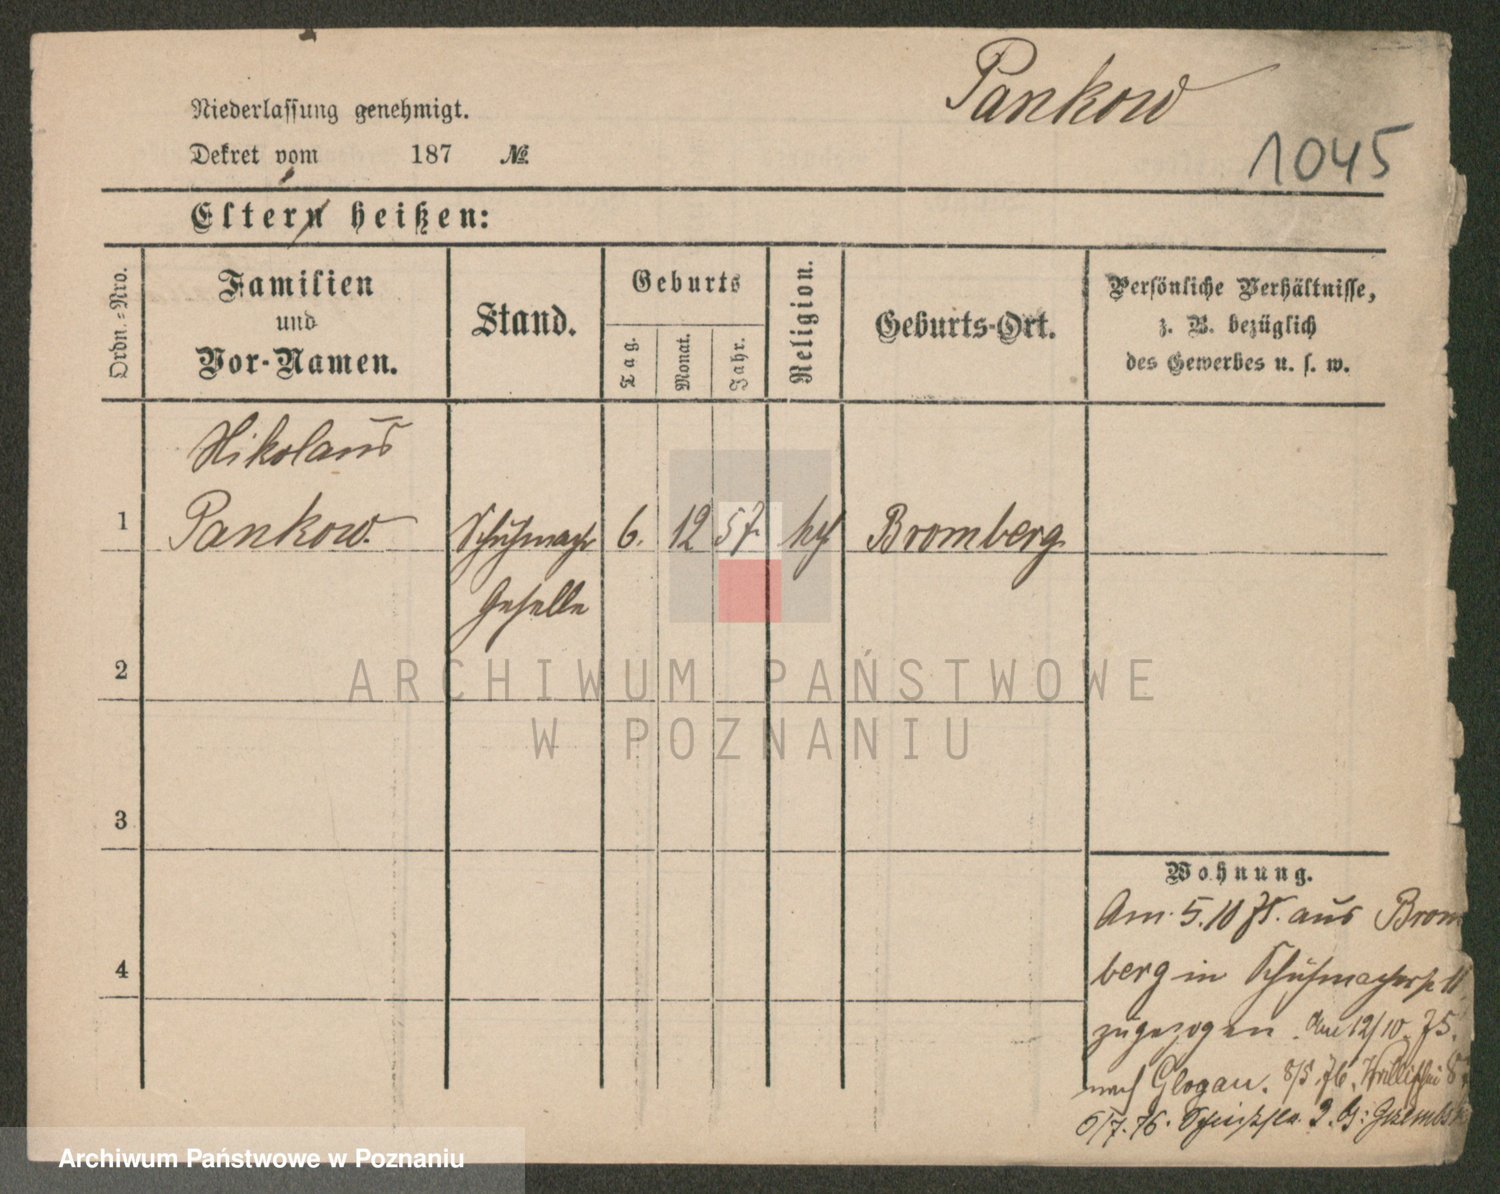 Pankow
1045
Niederlassung genehmigt.
Dekret vom 187 №
Eltern heißen:
Ordn.-Nro.
Familien
und
Vor-Namen.
Stand.
Geburts
Tag.
Monat.
Jahr.
Religion.
Geburts-Ort.
Persönliche Verhältnisse,
z. B. bezüglich
des Gewerbes u. s. w.
Nikolaus
1 Pankow. Schuhmach 6. 12 57. kth Bromberg
Geselle
2
3
4
Wohnung.
Am 5.10 75. aus Brom
berg in Schuhmacherstr 11
zugezogen. Am 12/10. 75.
nach Glogau. 8/5. 76.
6/7. 76. 2. b:
ARCHIWUM PAŃSTWOWE
W POZNANIU
Archiwum Państwowe w Poznaniu